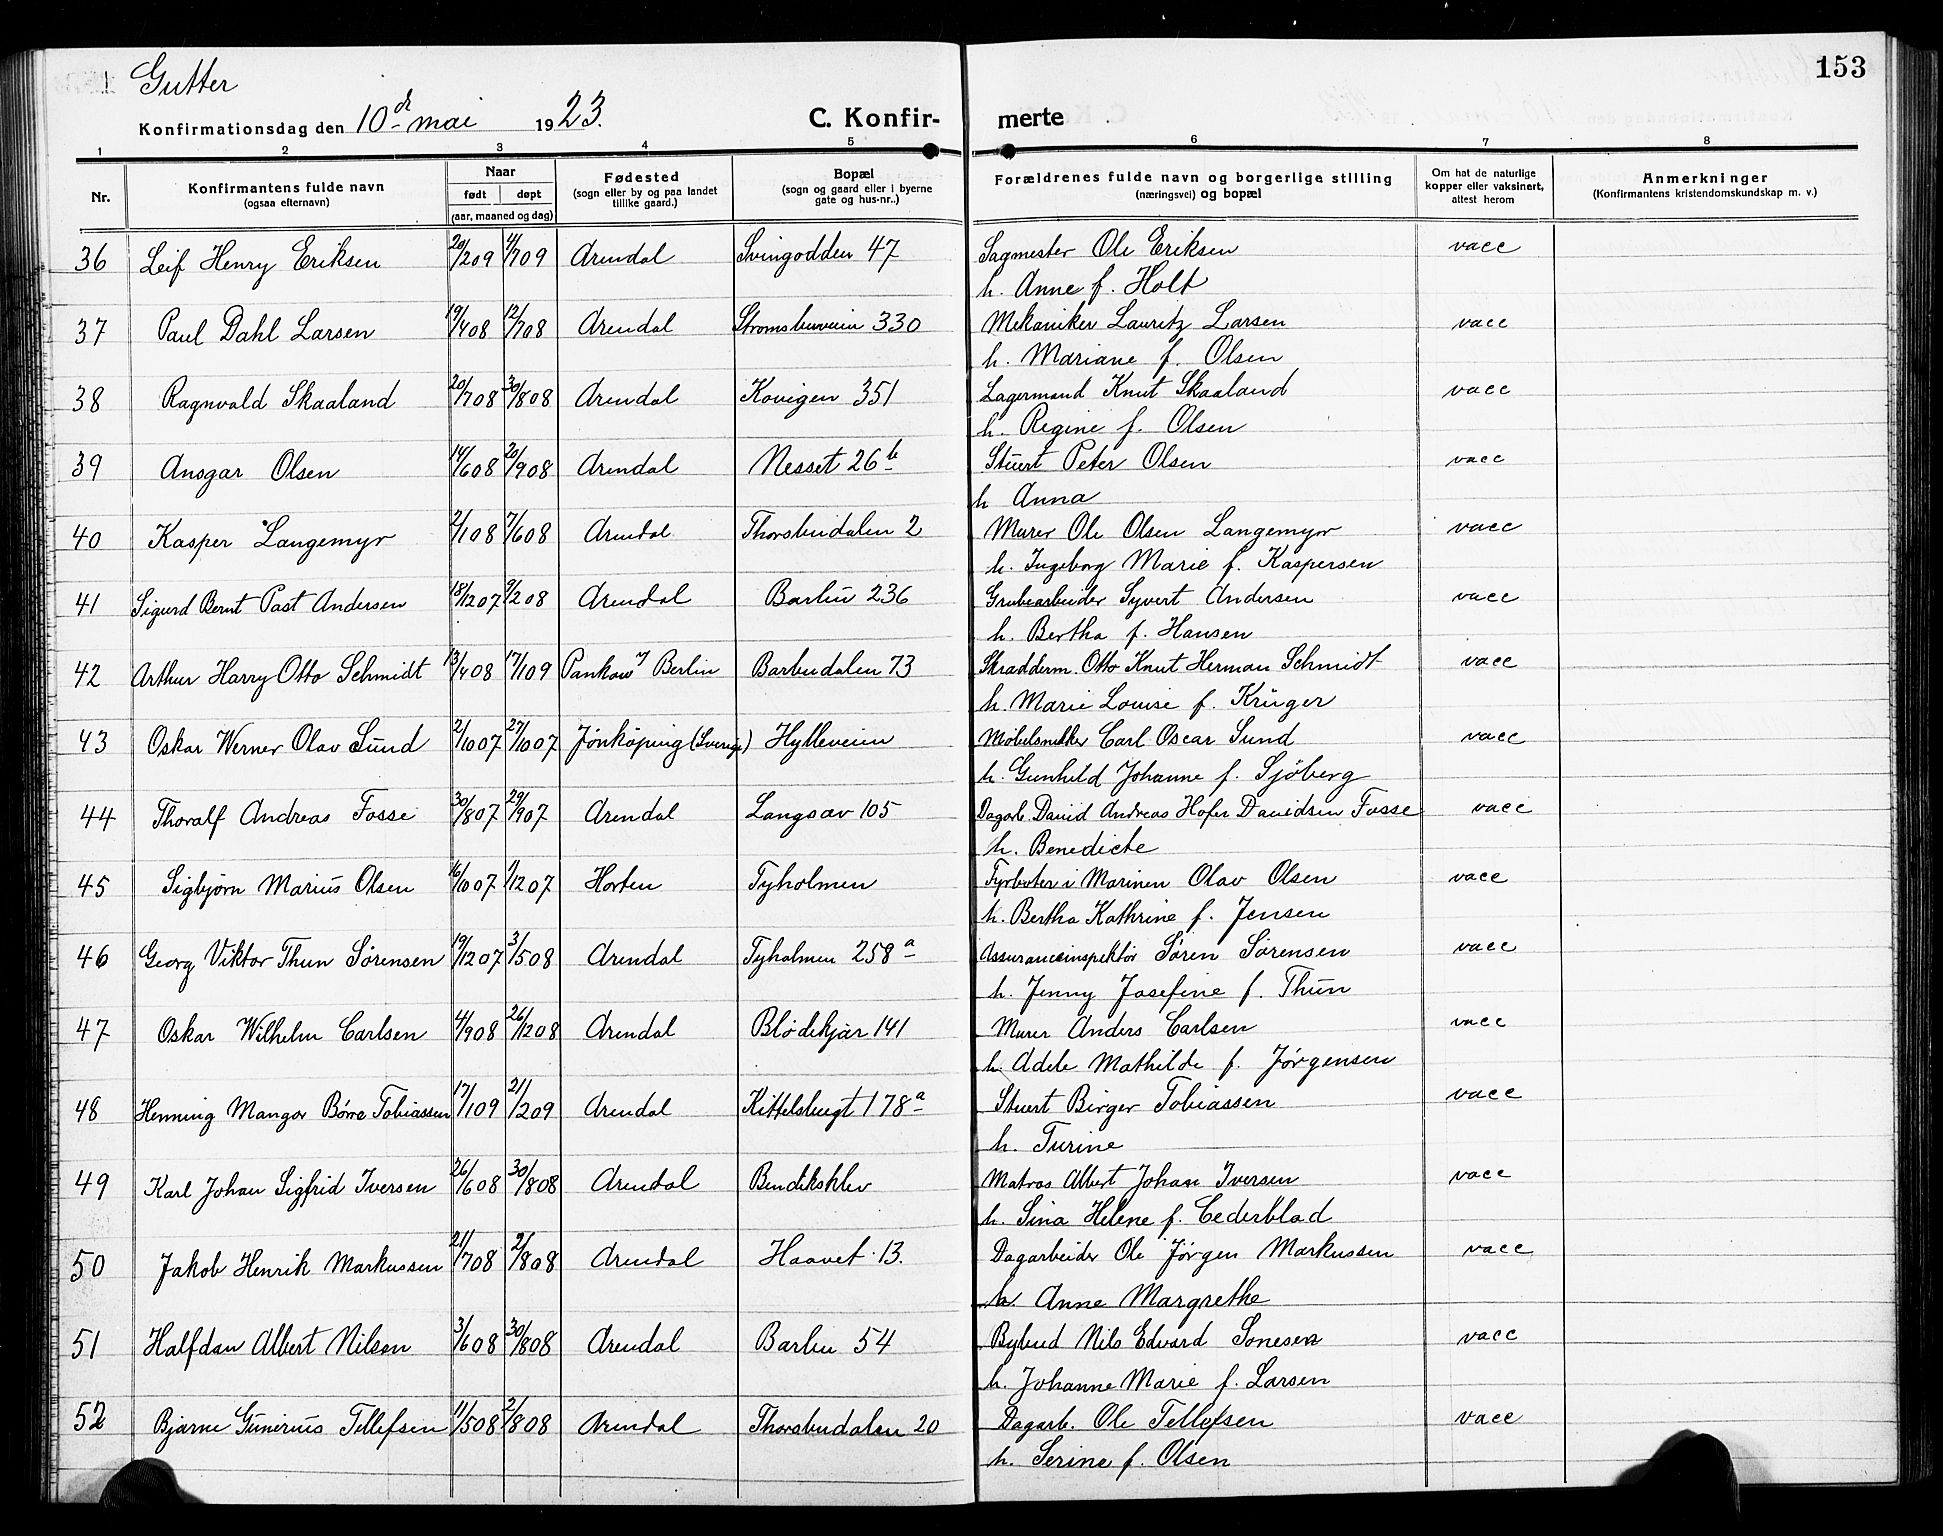 Gutter
153
Konfirmationsdag den 10de mai 1923.
C. Konfirmerte
1 2 3 4 5 6 7 8
Nr. Konfirmantens fulde navn (ogsaa efternavn) Naar født døpt (aar, maaned og dag) Fødested (sogn eller by og paa landet tillike gaard.) Bopæl (sogn og gaard eller i byerne gate og hus-nr..) Forældrenes fulde navn og borgerlige stilling (næringsvei) og bopæl Om hat de naturlige kopper eller vaksinert, attest herom Anmerkninger (Konfirmantens kristendomskundskap m. v.)
36 Leif Henry Eriksen 20/2 09 4/7 09 Arendal Svingodden 47 Sagmester Ole Eriksen vacc
h. Anne f. Holt
37 Paul Dahl Larsen 19/4 08 12/7 08 Arendal Strømsbuveien 330 Mekaniker Lauritz Larsen vacc
h. Mariane f. Olsen
38 Ragnvald Skaaland 20/7 08 30/8 08 Arendal Kovigen 351 Lagermand Knut Skaaland vacc
h. Regine f. Olsen
39 Ansgar Olsen 14/6 08 20/9 08 Arendal Nesset 26b Stuert Peter Olsen vacc
h Anna
40 Kasper Langemyr 2/1 08 7/6 08 Arendal Thorsbudalen 2 Murer Ole Olsen Langemyr vacc
h. Ingeborg Marie f. Kaspersen
41 Sigurd Bernt Past Andersen 18/12 07 9/2 08 Arendal Barbu 236 Grubearbeider Syvert Andersen vacc
h. Bertha f. Hansen
42 Arthur Harry Otto Schmidt 13/4 08 17/1 09 Pankow Berlin Barbudalen 73 Skradderm. Otto Knut Herman Schmidt vacc
h. Marie Louise f. Krüger
43 Oskar Werner Olav Sund 2/10 07 27/10 07 Jönköping (Sverige) Hylleveien Møbelsnekker Carl Oscar Sund vacc
h. Gunhild Johanne f. Sjöberg
44 Thoralf Andreas Fosse 30/8 07 29/9 07 Arendal Langsav 105 Dagarb. David Andreas Hofer Davidsen Fosse vacc
h. Benedicte
45 Sigbjørn Marius Olsen 16/10 07 1/12 07 Horten Tyholmen Fyrbøter i Marinen Olav Olsen vacc
h. Bertha Kathrine f. Jensen
46 Georg Viktor Thun Sørensen 19/12 07 3/5 08 Arendal Tyholmen 258a Assuranceinspektør Søren Sørensen vacc
h. Jenny Josefine f. Thun
47 Oskar Wilhelm Carlsen 4/9 08 26/12 08 Arendal Blødekjær 141 Murer Anders Carlsen vacc
h. Adele Mathilde f. Jørgensen
48 Henning Mangor Børre Tobiassen 17/1 09 21/2 09 Arendal Kittelsbugt 178a Stuert Birger Tobiassen vacc
h. Turine
49 Karl Johan Sigfrid Iversen 26/6 08 30/8 08 Arendal Bendiksklev Matros Albert Johan Iversen vacc
h. Sina Helene f. Cederblad
50 Jakob Henrik Markussen 21/7 08 2/8 08 Arendal Haavet 13. Dagarbeider Ole Jørgen Markussen vacc
h. Anne Margrethe
51 Halfdan Albert Nilsen 3/6 08 30/8 08 Arendal Barbu 54 Bybud Nils Edvard Sonesen vacc
h. Johanne Marie f. Larsen
52 Bjarne Gunerius Tellefsen 11/5 08 2/8 08 Arendal Thorsbudalen 20 Dagarb. Ole Tellefsen vacc
h. Serine f. Olsen